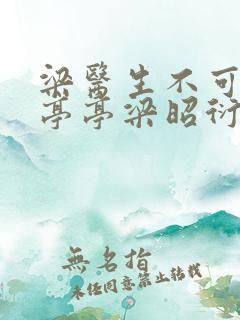 梁醫生不可
亭亭梁昭衍
無名指
未经同意禁止转载